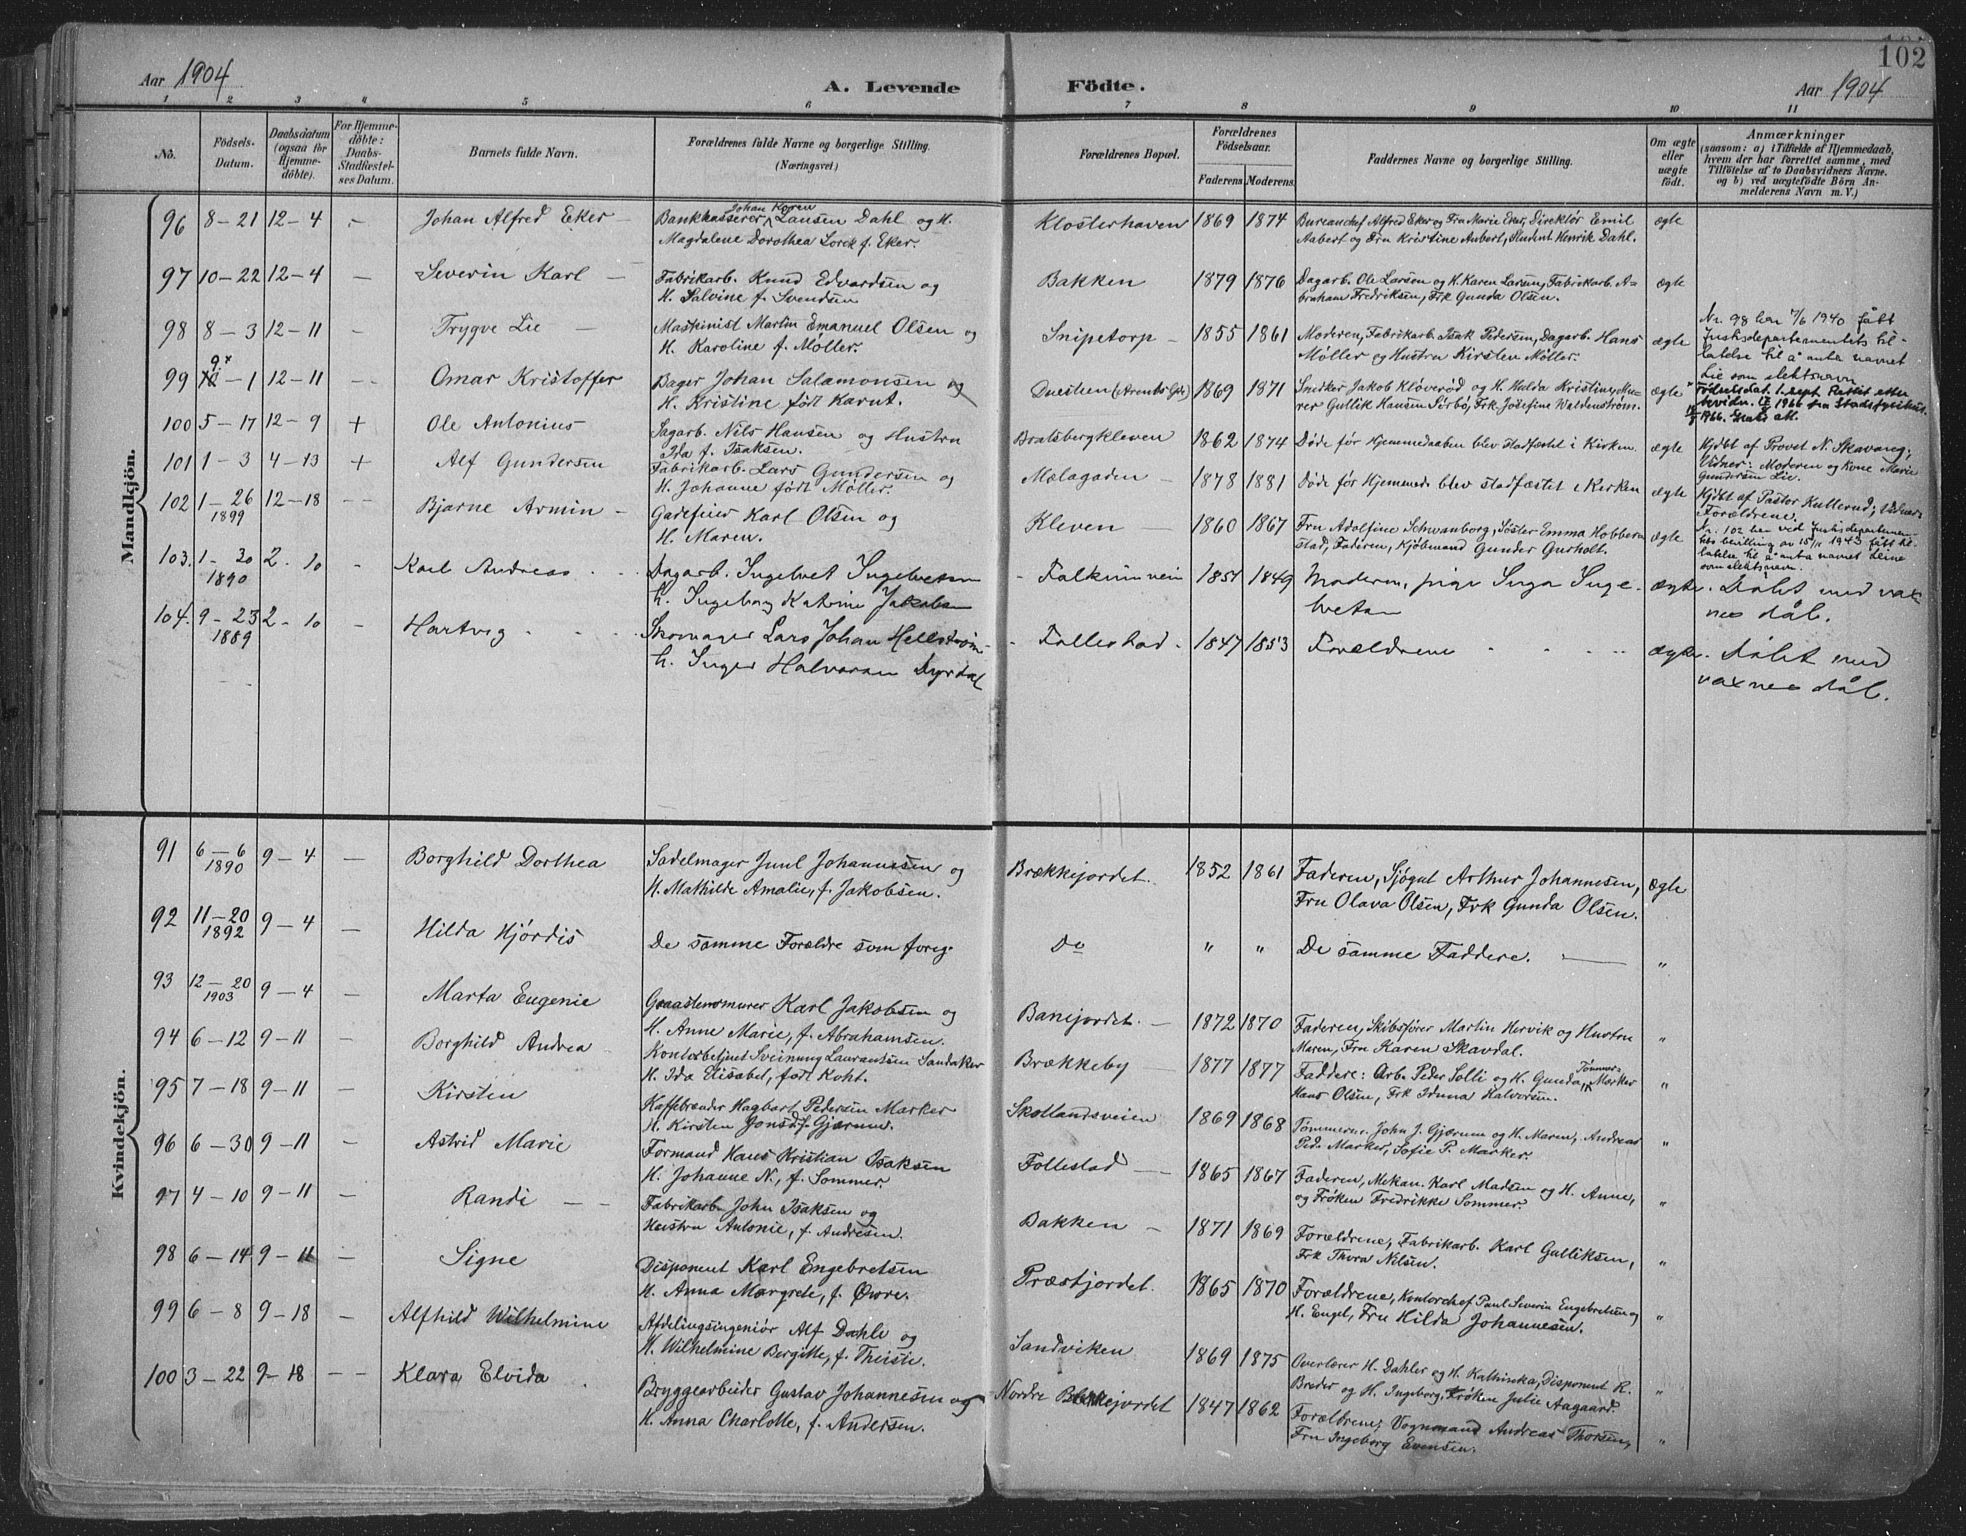 102
Aar 1904
A. Levende
Födte.
Aar 1904
1 2 3 4 5 6 7 8 9 10 11
No.
Födsels-
Datum.
Daabsdatum
(ogsaa for
Hjemme-
döbte).
For Hjemme-
döbte:
Daabs-
Stadfæstel-
ses Datum.
Barnets fulde Navn.
Forældrenes fulde Navne og borgerlige Stilling.
(Næringsvei)
Forældrenes Bopæl.
Forældrenes
Födselsaar.
Faderens Moderens.
Faddernes Navne og borgerlige Stilling.
Om ægte
eller
uægte
födt.
Anmærkninger
(saasom: a) i Tilfælde af Hjemmedaab,
hvem der har forrettet samme, med
Tilföielse af to Daabsvidners Navne.
og b) ved uægtefödte Börn An-
melderens Navn m. V.)
Mandkjön.
96 8-21 12-4 - Johan Alfred Eker - Bankkasserer Johan Koren Lausen Dahl og H. Klosterhaven 1869 1874 Bureauchef Alfred Eker og Fru Marie Eker, Direktør Emil ægte
Magdalene Dorothea Lorck f. Eker. Aubert og Fru Kristine Aubert, Student Henrik Dahl.
97 10-22 12-4 - Severin Karl - Fabrikarb. Knud Edvardsen og Bakken 1879 1876 Dagarb. Ole Larsen og H. Karen Larsen, Fabrikarb. A- ægte
H. Salvine f. Svendsen braham Fredriksen, Frk Gunda Olsen.
98 8-3 12-11 Trygve Lie - Maskinist Martin Emanuel Olsen og Snipetorp - 1855 1861 Moderen, Fabrikarb. Isak Pedersen, Dagarb. Hans ægte Nr. 98 har 7/6 1940 fått
H. Karoline f. Møller. Møller og Hustru Kirsten Møller. Justisdepartementets til-
latelse til å anta navnet
Lie som slektsnavn
99 9x - 1 12-11 - Omar Kristoffer Bager Johan Salamonsen og Duestien (Arents Gd.) 1869 1871 Snedker Jakob Kløverød og H. Hulda Kristine, Mu- ægte x Födselsdat. 1. sept. Rettet etter
H. Kristine født Karut. rer Gullik Hansen Sørbø, Frk Josefine Waldenstrøm. 1966 fra Stadsfysikus.
100 5-17 12-9 + Ole Antonius Sagarb. Nils Hansen og Hustru Bratsbergkleven 1862 1874 Døde før Hjemmedaaben blev stadfæstet i Kirken. ægte Hjdbt af Provst N. Skavang;
Ida f. Isaksen. Vidner: Moderen og Kone Marie
Gundersen Lie.
101 1-3 4-13 + Alf Gundersen Fabrikarb. Lars Gundersen og Melagaden - 1878 1881 Døde før Hjemmed. blev stadfæstet i Kirken ægte Hjdbt af Pastor Kullerud; Vidner:
H. Johanne født Møller. Forældrene.
102 1-26 1899 12-18 - - Bjarne Armin - Gadefeier Karl Olsen og Kleven - 1860 1867 Fru Adolfine Schwanborg, Søster Emma Hobber- ægte Nr. 102 har ved Justisdepartemen-
H. Maren. stad, Faderen, Kjøbmand Gunder Gurholt. tets bevilling av 15/11 1943 fått til-
latelse til å anta navnet Leine
som slektsnavn.
103. 1-30 1890 2.10 - Karl Andreas Dagarb. Ingelvet Ingelvetsen - Falkumveien 1851 1849 Moderen, pige Inga Inge- ægte. Døbt med vax
h. Ingeborg Katrine Jakobsen betsen nes dåb.
104. 9-23 1889 2.10 - Hartvig Skomager Lars Johan Hellstrøm - Follestad . 1847 1853 Forældrene ægte. Døbt med
h. Inger Halvorsen Dyrdal voxnes dåb.
Kvindekjön.
91 6-6 1890 9-4 - Borghild Dorthea Sadelmager Juul Johannesen og Brækkejordet. 1852 1861 Faderen, Sjøgut Arthur Johannesen, ægte
H. Mathilde Amalie, f. Jakobsen. Fru Olava Olsen, Frk Gunda Olsen.
92 11-20 1892 9-4 - Hilda Hjørdis De samme Forældre som foreg. Do " " De samme Faddere. - "
93 12-20 1903 9-4 - Marta Eugenie Graastensmurer Karl Jakobsen og Banejordet. - 1872 1870 Faderen, Skibsfører Martin Hervik og Hustru "
H. Anne Marie, f. Abrahamsen. Maren, Fru Karen Skavdal.
94 6-12 9-11 - Borghild Andrea Kontorbetjent Sveinung Lauransen Sandaker Brækkeby - 1877 1877 Faddere: Arb. Peder Solli og H. Gunda, Tømmer- "
H. Ida Elisabet, født Koht. Hans Olsen, Frk Idunna Halvorsen.
95 7-18 9-11 - Kirsten Kaffebrænder Hagbart Pedersen Marker Skotlandsveien 1869 1868 Tømmerm. John J. Gjærum og H. Maren, Andreas "
H. Kirsten Jonsd. f. Gjærum. Ped. Marker, Sofie P. Marker.
96 6-30 9-11 - Astrid Marie Formand Hans Kristian Isaksen Follestad - 1865 1867 Faderen, Mekan. Karl Madsen og H. Anne, "
H. Johanne N., f. Sommer. og Frøken Fredrikke Sommer.
97 4-10 9-11 - Randi - - Fabrikarb John Isaksen og Bakken - 1871 1869 Forældrene, Fabrikarb. Karl Gulliksen, "
Hustru Antonie, f. Andresen. Frk Thora Nilsen.
98 6-14 9-11 - Signe Disponent Karl Engebretsen Præstjordet. 1865 1870 Forældrene, Kontorchef Paul Severin Engebretsen og "
H. Anna Margrete, f. Owre. H. Engel, Fru Hilda Johannesen.
99 6-8 9-18 - Alfhild Wilhelmine Afdelingsingeniør Alf Dahle og Sandviken 1869 1875 Overlærer H. Dahler og H. Kathinka, Disponent R. "
H. Wilhelmine Bergitte, f. Thiste. Breder og H. Ingeborg, Frøken Julie Aagaard.
100 3-22 9-18 - - Klara Elvida Bryggearbeider Gustav Johannesen og Nordre Brækkejordet 1847 1862 Forældrene, Vognmand Andreas Thorsen, "
H. Anna Charlotte, f. Andersen. Fru Ingeborg Evensen.